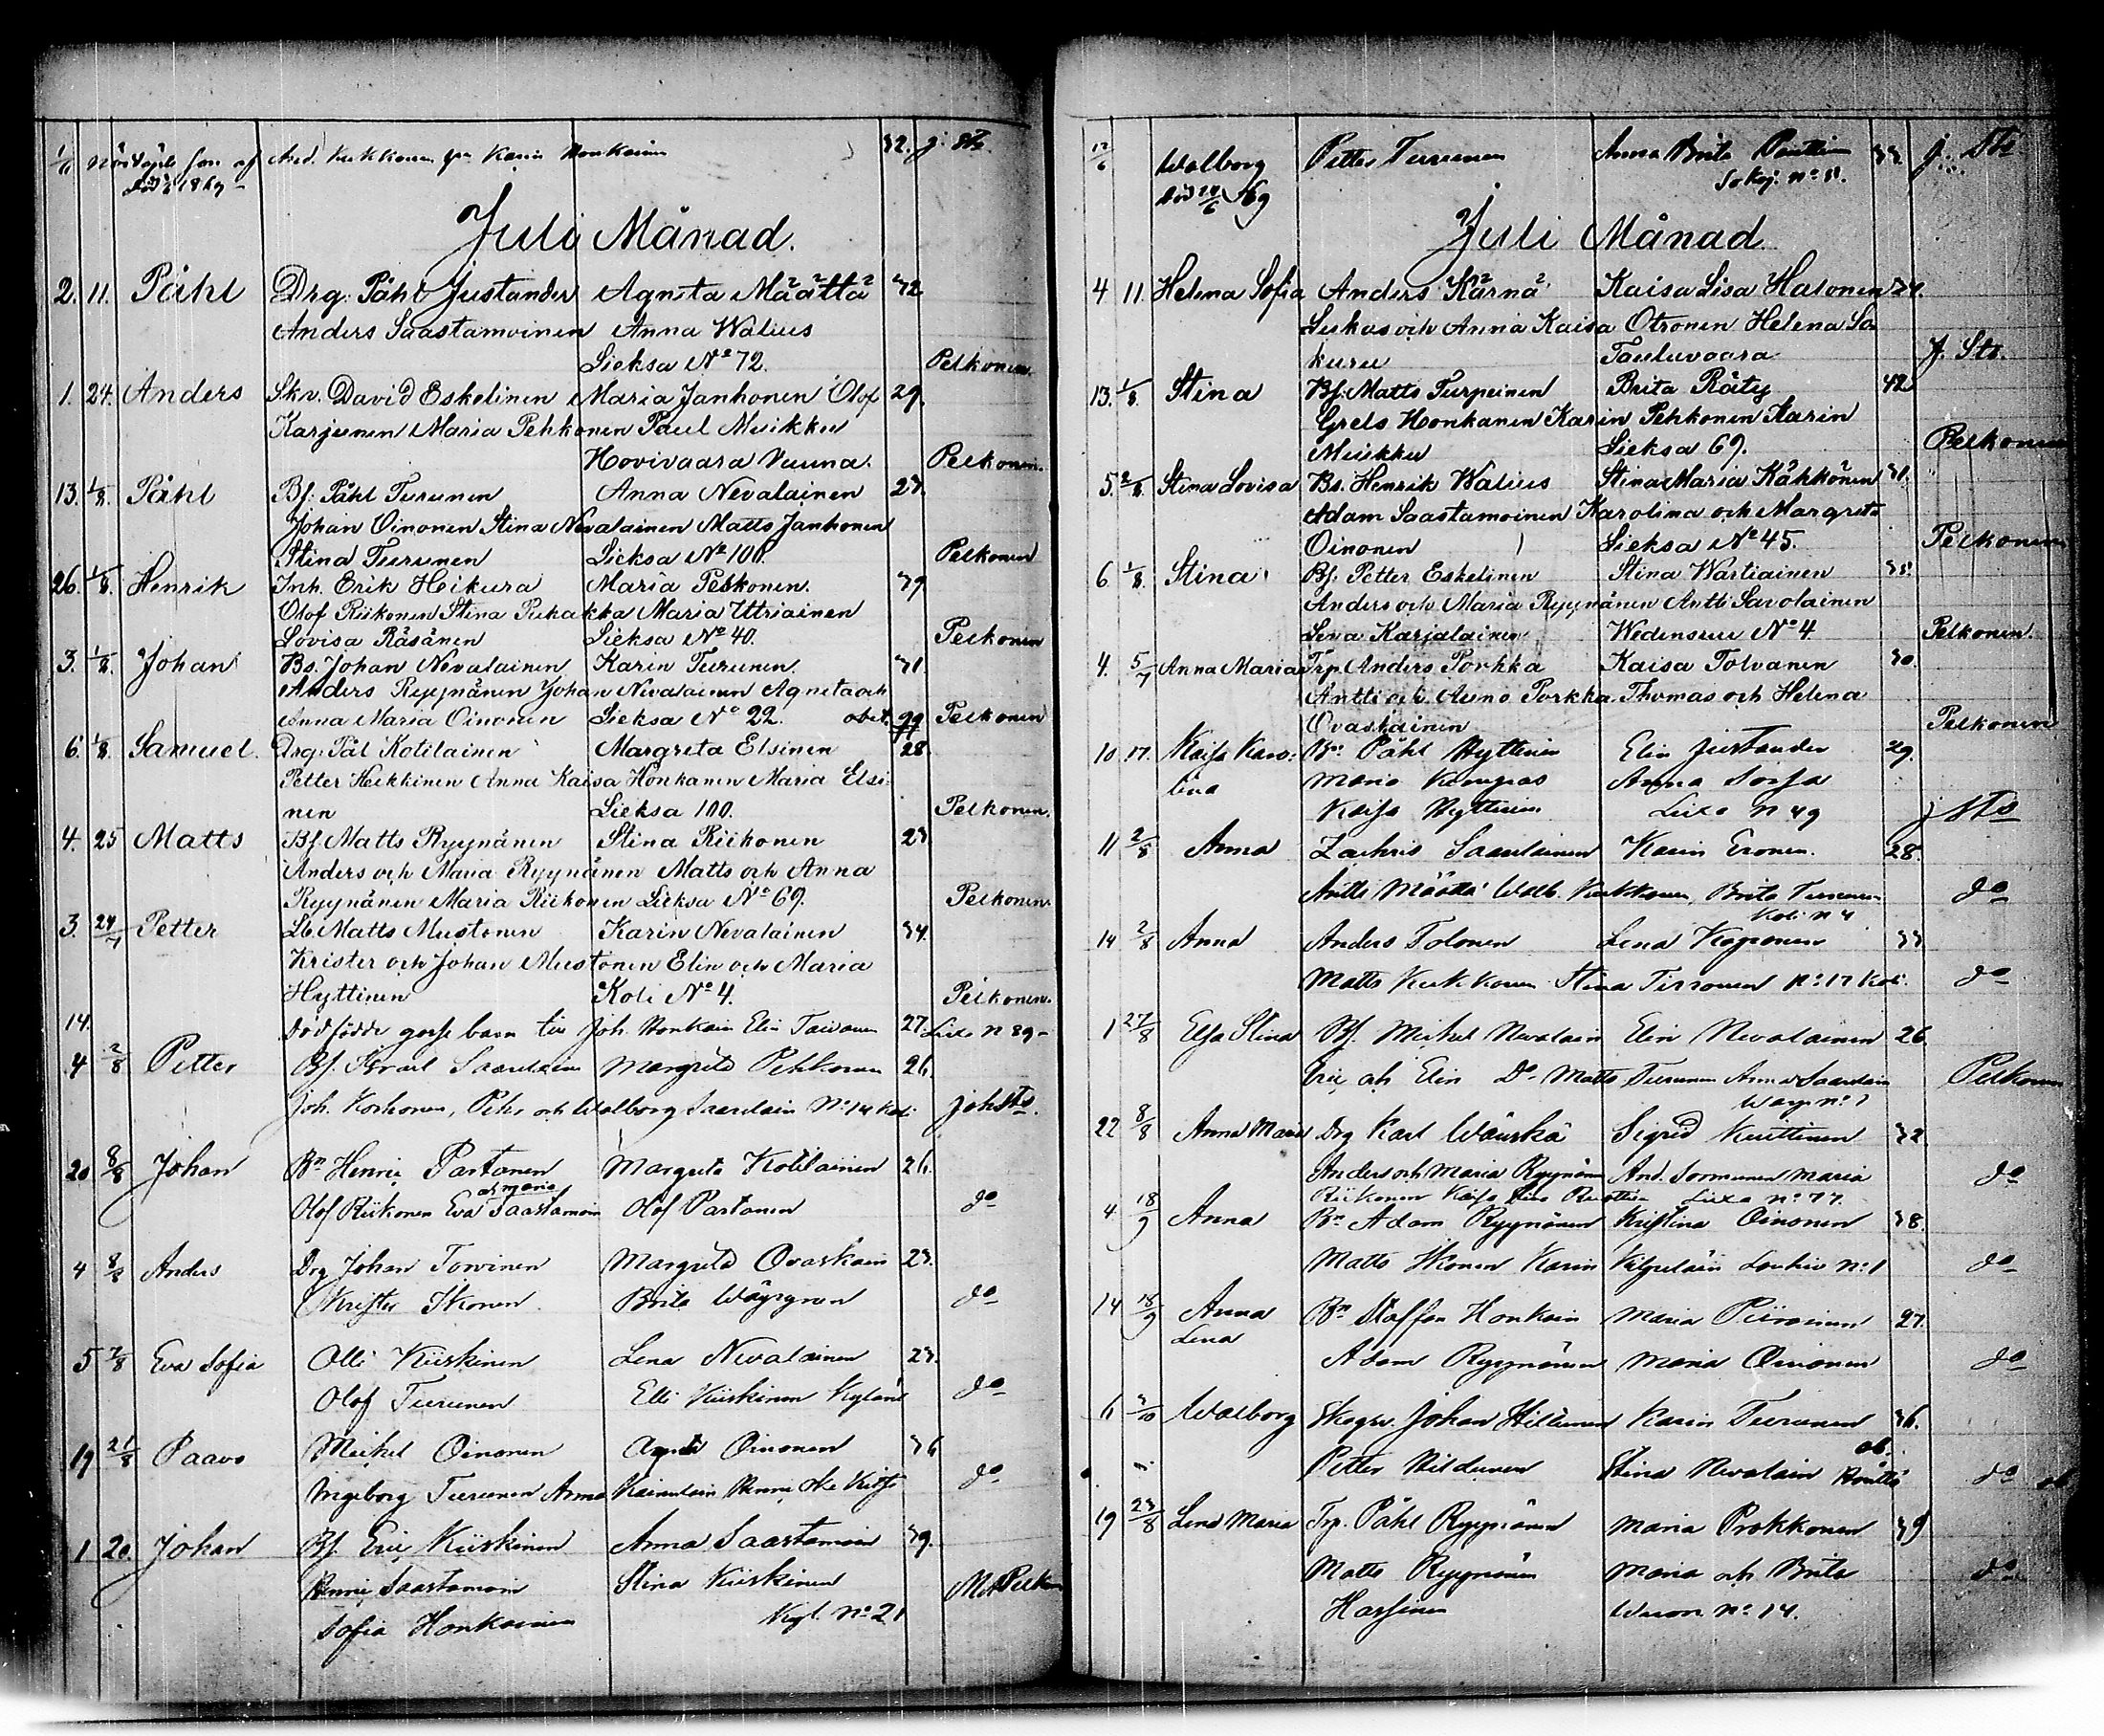 1/6 Nöddöpte son af And. Kukkonen fru Karin Honkainen 32. J. Sts.
död 1869
Juli Månad.
2. 11. Påhl Drg. Påhl Justander Agneta Määttä 32
Anders Saastamoinen Anna Walius
Lieksa No 72. Pelkonen.
1. 24. Anders Skr. David Eskelinen Maria Janhonen Olof 29.
Karjunen Maria Pehkonen Paul Muikku
Hovivaara Vuuna. Pelkonen.
13. 1/8. Påhl Bf. Påhl Turunen Anna Nevalainen 23.
Johan Oinonen Stina Nevalainen Matts Janhonen
Stina Turunen Lieksa No 100. Pelkonen
26. 1/8. Henrik Inh. Erik Heikura Maria Pelkonen. 39
Olof Riikonen Stina Pukakka Maria Uttriainen
Lovisa Räsänen Lieksa No 40. Pelkonen
3. 1/8. Johan Bs. Johan Nevalainen Karin Turunen. 31
Anders Ryynänen Johan Nevalainen Agneta och
Anna Maria Oinonen Lieksa No 22. obet. Pelkonen
6. 1/8. Samuel Drg. Pål Kotilainen Margreta Elsinen 28.
Petter Heikkinen Anna Kaisa Honkanen Maria Elsi-
nen Lieksa 100. Pelkonen.
4. 25 Matts Bf. Matts Ryynänen Stina Riikonen 23
Anders och Maria Ryynänen Matts och Anna
Ryynänen Maria Riikonen Lieksa No 69. Pelkonen.
3. 24/7 Petter Lb. Matts Mustonen Karin Nevalainen 34.
Krister och Johan Mustonen Elin och Maria
Hyttinen Koli No 4. Pelkonen.
14. Dödfödde gosse barn till Joh. Honkain Elin Taivainen 27. Lixa N 89
4 2/8 Petter Bf. Israel Saarelainen Margreta Pehkonen 26.
Joh. Korhonen, Pehr och Walborg Saarelain No 14 Kol. Joh Sts.
20 8/8 Johan Bn Henric Partanen Margreta Kotilainen 26.
och Maria
Olof Riikonen Eva Saastamoin Olof Partanen do
4 8/8 Anders Drg Johan Torvinen Margreta Ovaskain 23.
Krister Ikonen. Brita Wäyrynen do
5 7/8 Eva Sofia Olli Kiiskinen Lena Nevalainen 23.
Olof Turunen Elli Kiiskinen Kylänl do
19 21/8 Paavo Mickel Oinonen Agneta Oinonen 36
Ingeborg Turunen Anna Kainulain do
1 20. Johan Bf. Eric Kiiskinen Anna Saastamoin 39.
Henric Saastamoin Stina Kiiskinen M Pelkon
Sofia Honkainen Kyl. No 21
12/6 Walborg Petter Turunen Anna Brita Puttin 33 J. Sts
död 24/6 69 Sokoj. No 11.
Juli Månad
4 11. Helena Sofia Anders Kärnä Kaisa Lisa Halonen 24.
Lukas och Anna Kaisa Otronen Helena Sa
kuru Tauluvaara J. Sts.
13. 1/8. Stina Bf. Matts Turpeinen Brita Räty 42
Grels Honkanen Karin Pehkonen Karin
Muikku Lieksa 69. Pelkonen
5. 2/8. Stina Lovisa Bs. Henrik Walius Stina Maria Käkkönen 31.
Adam Saastamoinen Karolina och Margreta
Oinonen Lieksa No 45. Pelkonen
6 1/8. Stina Bf. Petter Eskelinen Stina Wartiainen 35.
Anders och Maria Ryynänen Antti Savolainen
Lena Karjalainen Wedensuu No 4 Pelkonen.
4. 5/7 Anna Maria Trp. Anders Porkka Kaisa Tolvanen 30.
Antti och Auno Porkka Thomas och Helena
Ovaskainen Pelkonen
10 17. Kaisa Karo- Bn Påhl Hyttinen Elin Justander 29.
lina Maria Kangas Anna Sorsa
Kaisa Hyttinen Lixa N 49 J Sts
11 2/8 Anna Zachris Saarelainen Karin Eronen. 28.
Antti Määttä Walb. Kukkonen, Brita Turunen do
Koli N 4
14 2/8 Anna Anders Tolonen Lena Kapronen 33
Matts Kukkonen Stina Tirronen No 17 Kol. do
1 27/8 Elsa Stina Bf. Mickel Nevalain Elin Nevalainen 26
Eric och Elin Do Matts Turunen Anna Saarelain Pelkonen
22 8/8 Anna Maria Drg Karl Wänskä Sigrid Kuittinen 32
Anders och Maria Ryynänen And. Sormunen Maria do
Riikonen Kaisa Lisa Lixa No 77.
4 18/9 Anna Bn Adam Ryynänen Kristina Oinonen 38.
Matts Ikonen Karin Kilpeläin Louhiv No 1 do
14 18/9 Anna Bn Staffan Honkain Maria Piironen 27.
Lena
Adam Ryynänen Maria Oinonen do
6 3/10 Walborg Skogv. Johan Hiltunen Karin Turunen 36.
Petter Hiltunen Stina Nevalain ob. do
19 23/8 Lena Maria Trp. Påhl Ryynänen Maria Prokkonen 39
Matts Ryynänen Maria och Brita do
Hassinen Wuon. No 14.